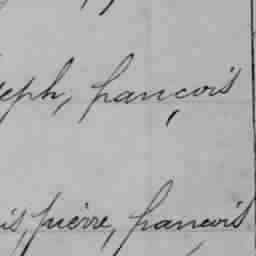 eph, françois
is, pierre, francois